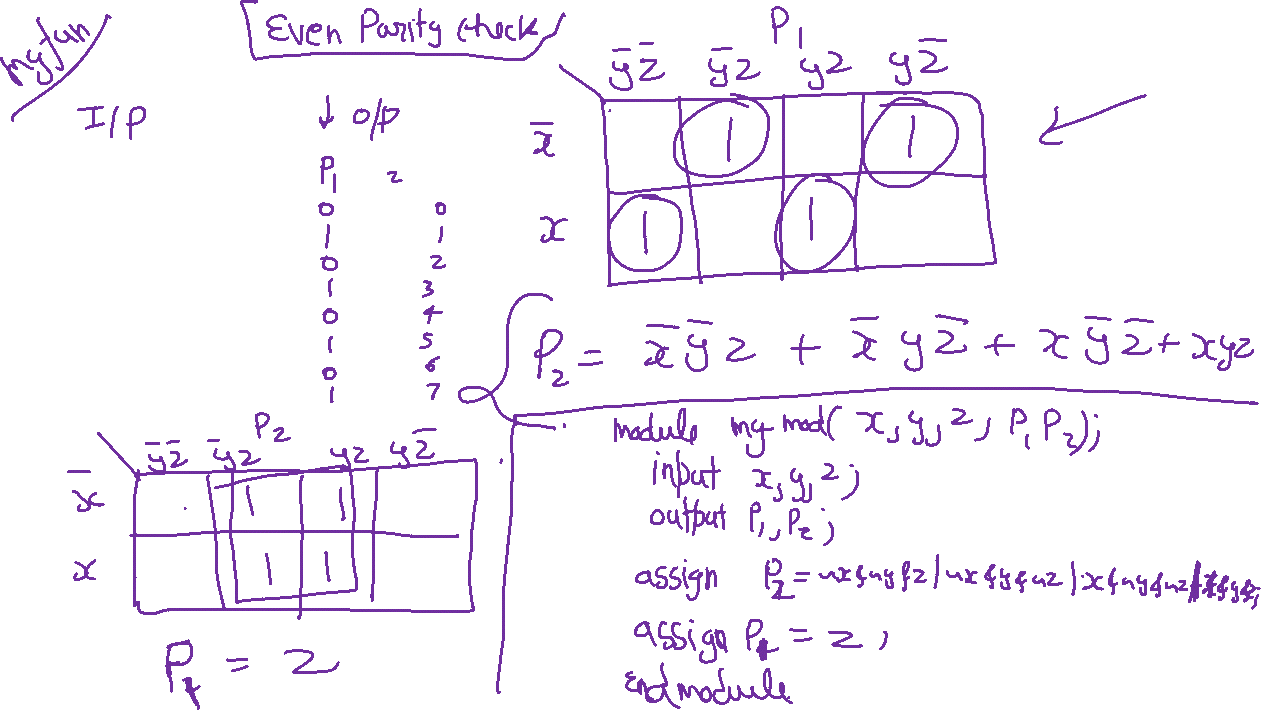 my fun
Even Parity check
I/P
O/P
P1 z
0 0
1 1
0 2
1 3
0 4
1 5
0 6
1 7
P1
y̅z̅ y̅z yz yz̅
x̅ 1 1
x 1 1
P2 = x̅y̅z + x̅yz̅ + xy̅z̅ + xyz
P2
y̅z̅ y̅z yz yz̅
x̅ 1 1
x 1 1
P1 = z
module my mod( x, y, z, P1 P2);
input x, y, z;
output P1, P2;
assign P2 = ~x&~y&z | ~x&y&~z | x&~y&~z
assign P1 = z;
endmodule